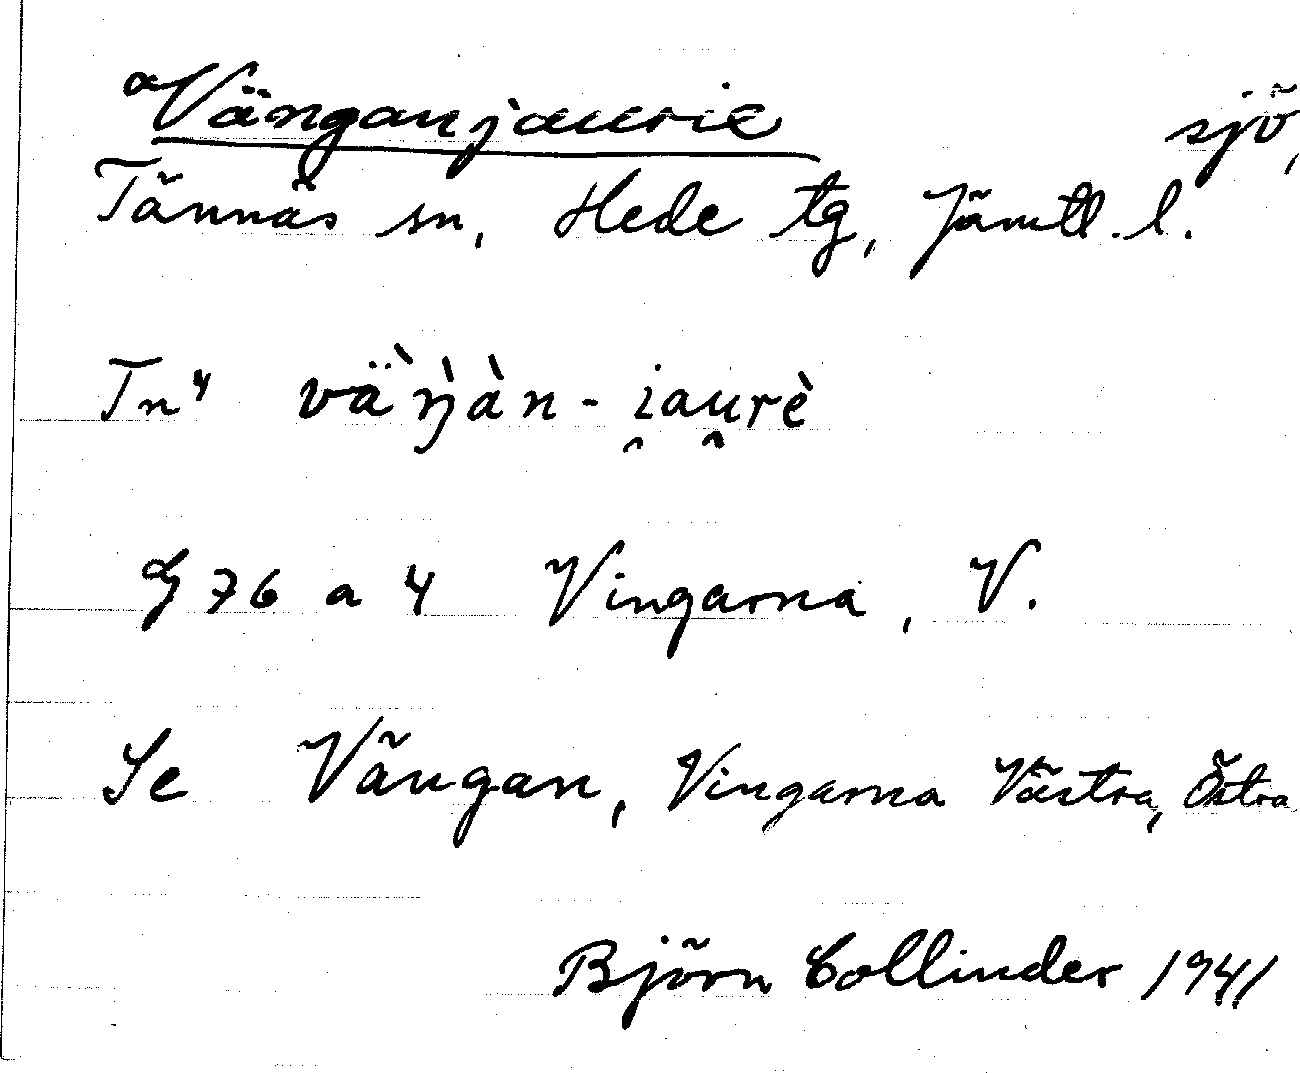 Vänganjaurie sjö,
Tännäs sn, Hede tg, Jämtl. l.
Tn⁴ vä̀ŋ̀àn - i̯au̯rè
G 76 a 4 Vingarna, V.
Se Vängan, Vingarna Västra, Östra
Björn Collinder 1941